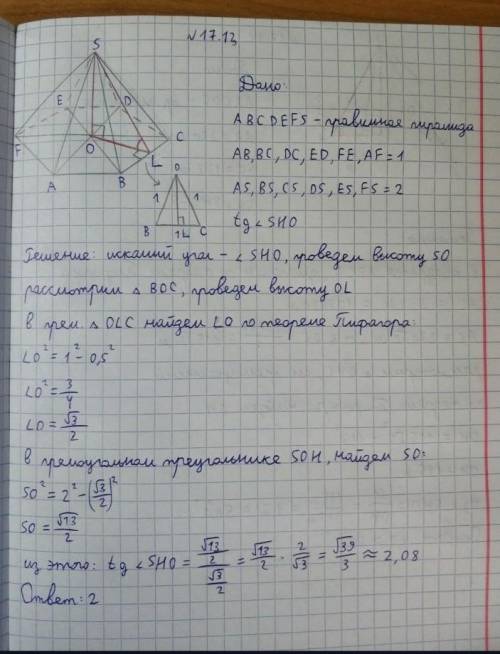 №17.13
Дано:
ABCDEFS - правильная пирамида
AB, BC, DC, ED, FE, AF = 1
AS, BS, CS, DS, ES, FS = 2
tg ∠SHO
S
E
D
F
O
C
L
A
B
O
1
1
B
1L
C
Решение: искомый угол - ∠SHO, проведем высоту SO
рассмотрим △ BOC, проведем высоту OL
в прям. △ OLC найдем LO по теореме Пифагора:
LO² = 1² - 0,5²
LO² = 3/4
LO = √3/2
в прямоугольном треугольнике SOH, найдем SO:
SO² = 2² - (√3/2)²
SO = √13/2
из этого: tg ∠SHO = (√13/2)/(√3/2) = √13/2 · 2/√3 = √39/3 ≈ 2,08
Ответ: 2